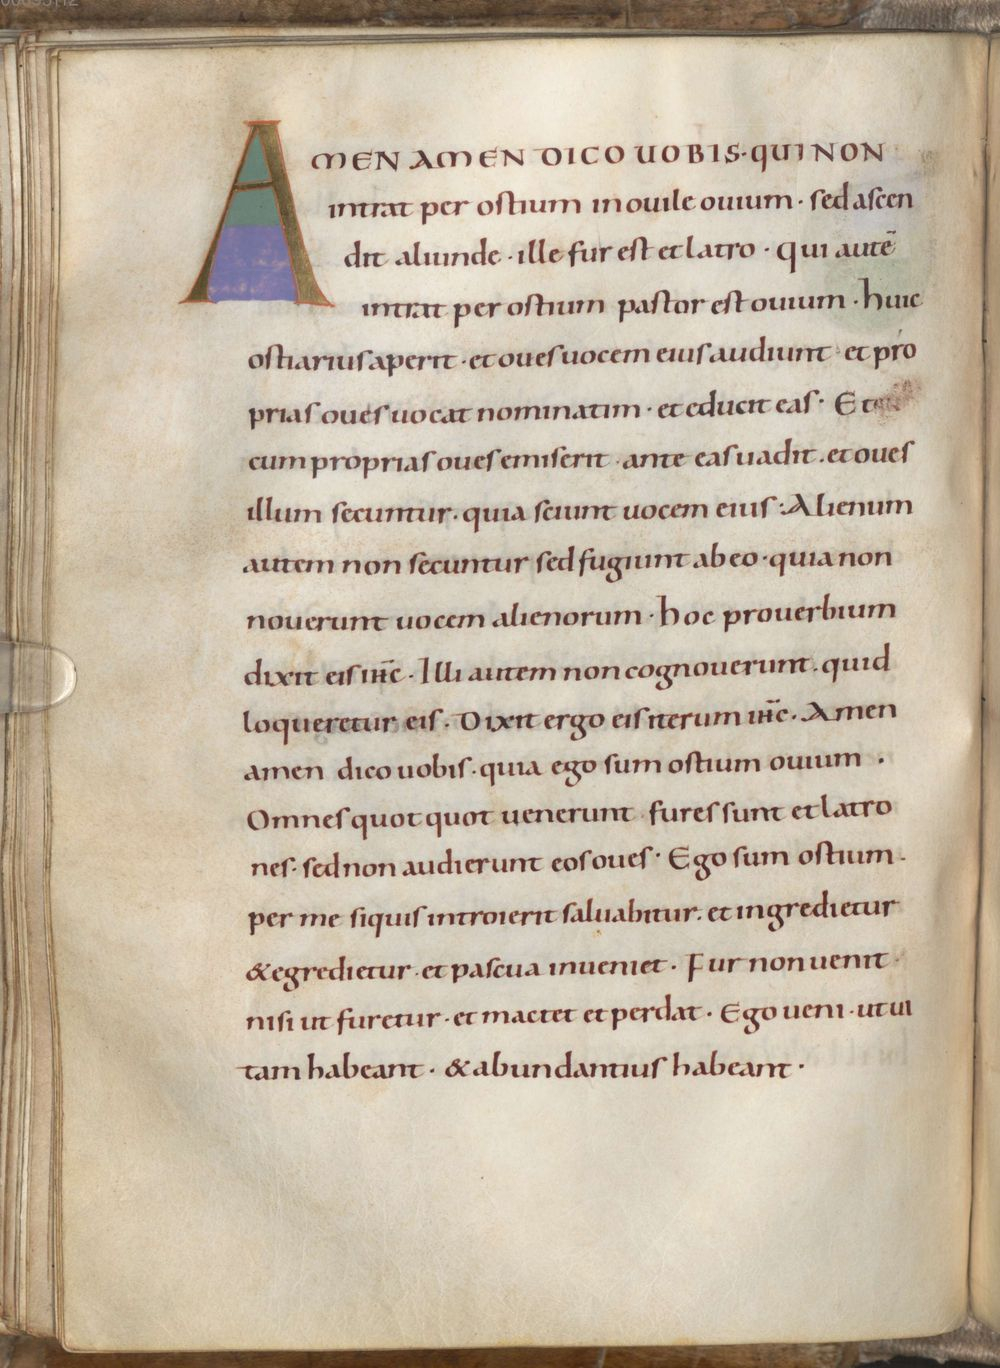 AMEN AMEN DICO UOBIS· QUI NON
intrat per ostium in ouile ouium · sed ascen
dit aliunde · ille fur est et latro · qui autē
intrat per ostium pastor est ouium · huic
ostiarius aperit · et oues uocem eius audiunt · et pro
prias oues uocat nominatim · et educit eas · Et
cum proprias oues emiserit · ante eas uadit . et oues
illum secuntur . quia sciunt uocem eius : Alienum
autem non secuntur sed fugiunt ab eo · quia non
nouerunt uocem alienorum · hoc prouerbium
dixit eis ihc̄ · Illi autem non cognouerunt . quid
loqueretur eis . Dixit ergo eis iterum ihc̄ . Amen
amen dico uobis . quia ego sum ostium ouium .
Omnes quot quot uenerunt · fures sunt et latro
nes · sed non audierunt eos oues · Ego sum ostium .
per me siquis introierit saluabitur . et ingredietur
& egredietur · et pascua inueniet . Fur non uenit ·
nisi ut furetur · et mactet et perdat . Ego ueni · ut ui
tam habeant . & abundantius habeant ·